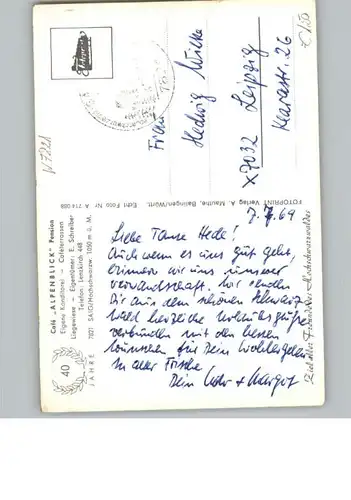 Café „ALPENBLICK" Pension
Eigene Konditorei – Caféterrassen
Liegewiese – Eigentümer: E. Schreiber
Telefon Lenzkirch 448
7821 SAIG/Hochschwarzw. 1050 m ü. M.
40
JAHRE
FOTOPRINT Verlag A. Mauthe, Balingen/Württ. Echt Foto Nr. A 714 088
7.7.69
Liebe Tante Hede!
Auch wenn es uns gut geht,
erinnern wir uns unserer
verwandtschaft. Wir senden
Dir aus dem schönen Schwarz-
wald herzliche Urlaubsgrüße
verbunden mit den besten
wünschen für Dein Wohlergehen
In alter Frische
Dein + Margot
Frau
Hedwig Wilke
X7032 Leipzig
Klarastr. 26
V7821